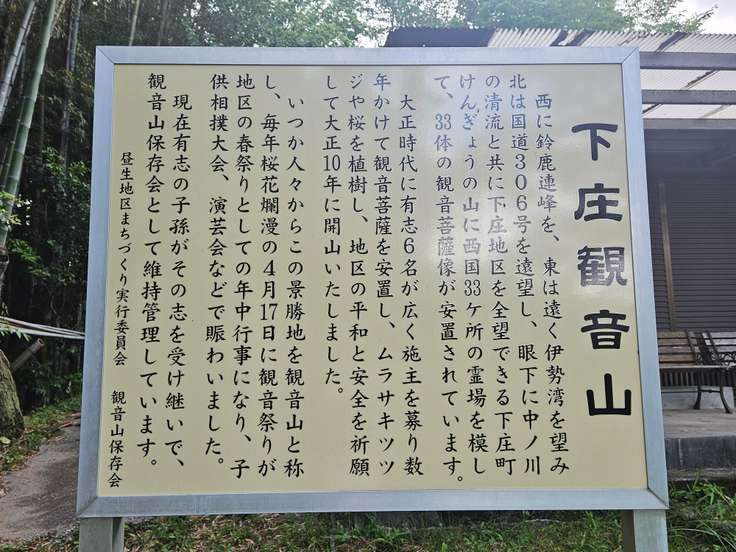 下庄観音山
西に鈴鹿連峰を、東は遠く伊勢湾を望み
北は国道306号を遠望し、眼下に中ノ川
の清流と共に下庄地区を全望できる下庄町
けんぎょうの山に西国33ケ所の霊場を模し
て、33体の観音菩薩像が安置されています。
大正時代に有志6名が広く施主を募り数
年かけて観音菩薩を安置し、ムラサキツツ
ジや桜を植樹し、地区の平和と安全を祈願
して大正10年に開山いたしました。
いつか人々からこの景勝地を観音山と称
し、毎年桜花爛漫の4月17日に観音祭りが
地区の春祭りとしての年中行事になり、子
供相撲大会、演芸会などで賑わいました。
現在有志の子孫がその志を受け継いで、
観音山保存会として維持管理しています。
昼生地区まちづくり実行委員会 観音山保存会